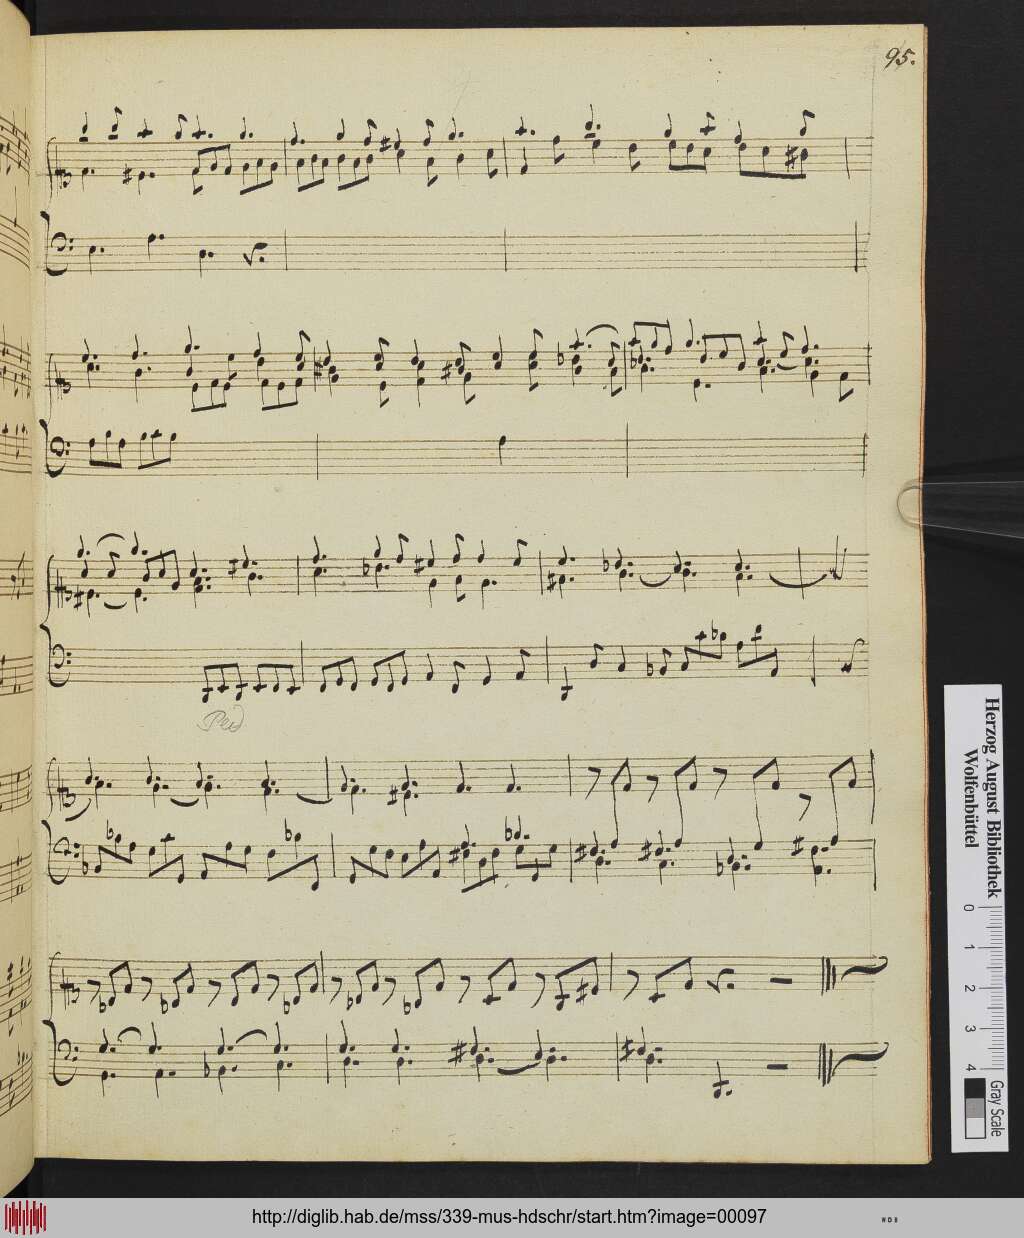 95.
Ped
Herzog August Bibliothek
Wolfenbüttel
0 1 2 3 4
Gray Scale
http://diglib.hab.de/mss/339-mus-hdschr/start.htm?image=00097
WDB